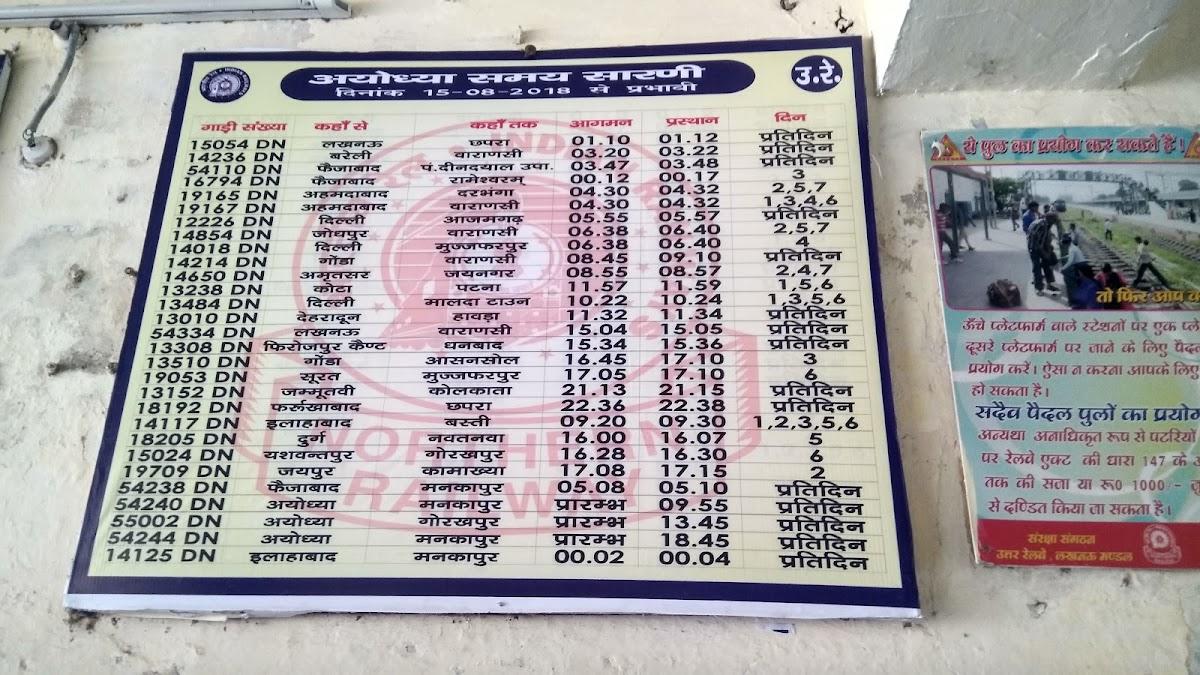 अयोध्या समय सारणी
दिनांक 15-08-2018 से प्रभावी
उ.रे.
गाड़ी संख्या कहाँ से कहाँ तक आगमन प्रस्थान दिन
15054 DN लखनऊ छपरा 01.10 01.12 प्रतिदिन
14236 DN बरेली वाराणसी 03.20 03.22 प्रतिदिन
54110 DN फैजाबाद पं.दीनदयाल उपा. 03.47 03.48 प्रतिदिन
16794 DN फैजाबाद रामेश्वरम् 00.12 00.17 3
19165 DN अहमदाबाद दरभंगा 04.30 04.32 2,5,7
19167 DN अहमदाबाद वाराणसी 04.30 04.32 1,3,4,6
12226 DN दिल्ली आजमगढ़ 05.55 05.57 प्रतिदिन
14854 DN जोधपुर वाराणसी 06.38 06.40 2,5,7
14018 DN दिल्ली मुज्जफरपुर 06.38 06.40 4
14214 DN गोंडा वाराणसी 08.45 09.10 प्रतिदिन
14650 DN अमृतसर जयनगर 08.55 08.57 2,4,7
13238 DN कोटा पटना 11.57 11.59 1,5,6
13484 DN दिल्ली मालदा टाउन 10.22 10.24 1,3,5,6
13010 DN देहरादून हावड़ा 11.32 11.34 प्रतिदिन
54334 DN लखनऊ वाराणसी 15.04 15.05 प्रतिदिन
13308 DN फिरोजपुर कैण्ट धनबाद 15.34 15.36 प्रतिदिन
13510 DN गोंडा आसनसोल 16.45 17.10 3
19053 DN सूरत मुज्जफरपुर 17.05 17.10 6
13152 DN जम्मूतवी कोलकाता 21.13 21.15 प्रतिदिन
18192 DN फर्रुखाबाद छपरा 22.36 22.38 प्रतिदिन
14117 DN इलाहाबाद बस्ती 09.20 09.30 1,2,3,5,6
18205 DN दुर्ग नवतनवा 16.00 16.07 5
15024 DN यशवन्तपुर गोरखपुर 16.28 16.30 6
19709 DN जयपुर कामाख्या 17.08 17.15 2
54238 DN फैजाबाद मनकापुर 05.08 05.10 प्रतिदिन
54240 DN अयोध्या मनकापुर प्रारम्भ 09.55 प्रतिदिन
55002 DN अयोध्या गोरखपुर प्रारम्भ 13.45 प्रतिदिन
54244 DN अयोध्या मनकापुर प्रारम्भ 18.45 प्रतिदिन
14125 DN इलाहाबाद मनकापुर 00.02 00.04 प्रतिदिन
NORTHERN
RAILWAY
ये पुल का प्रयोग कर सकते हैं!
तो फिर आप
ऊँचे प्लेटफार्म वाले स्टेशनों पर एक
दूसरे प्लेटफार्म पर जाने के लिए पैदल
प्रयोग करें। ऐसा न करना आपके लिए
हो सकता है।
सदैव पैदल पुलों का प्रयोग
अन्यथा अनाधिकृत रूप से पटरियों
पर रेलवे एक्ट की धारा 147 के
तक की सजा या रू0 1000/-
से दण्डित किया जा सकता है।
संरक्षा संगठन
उत्तर रेलवे, लखनऊ मण्डल